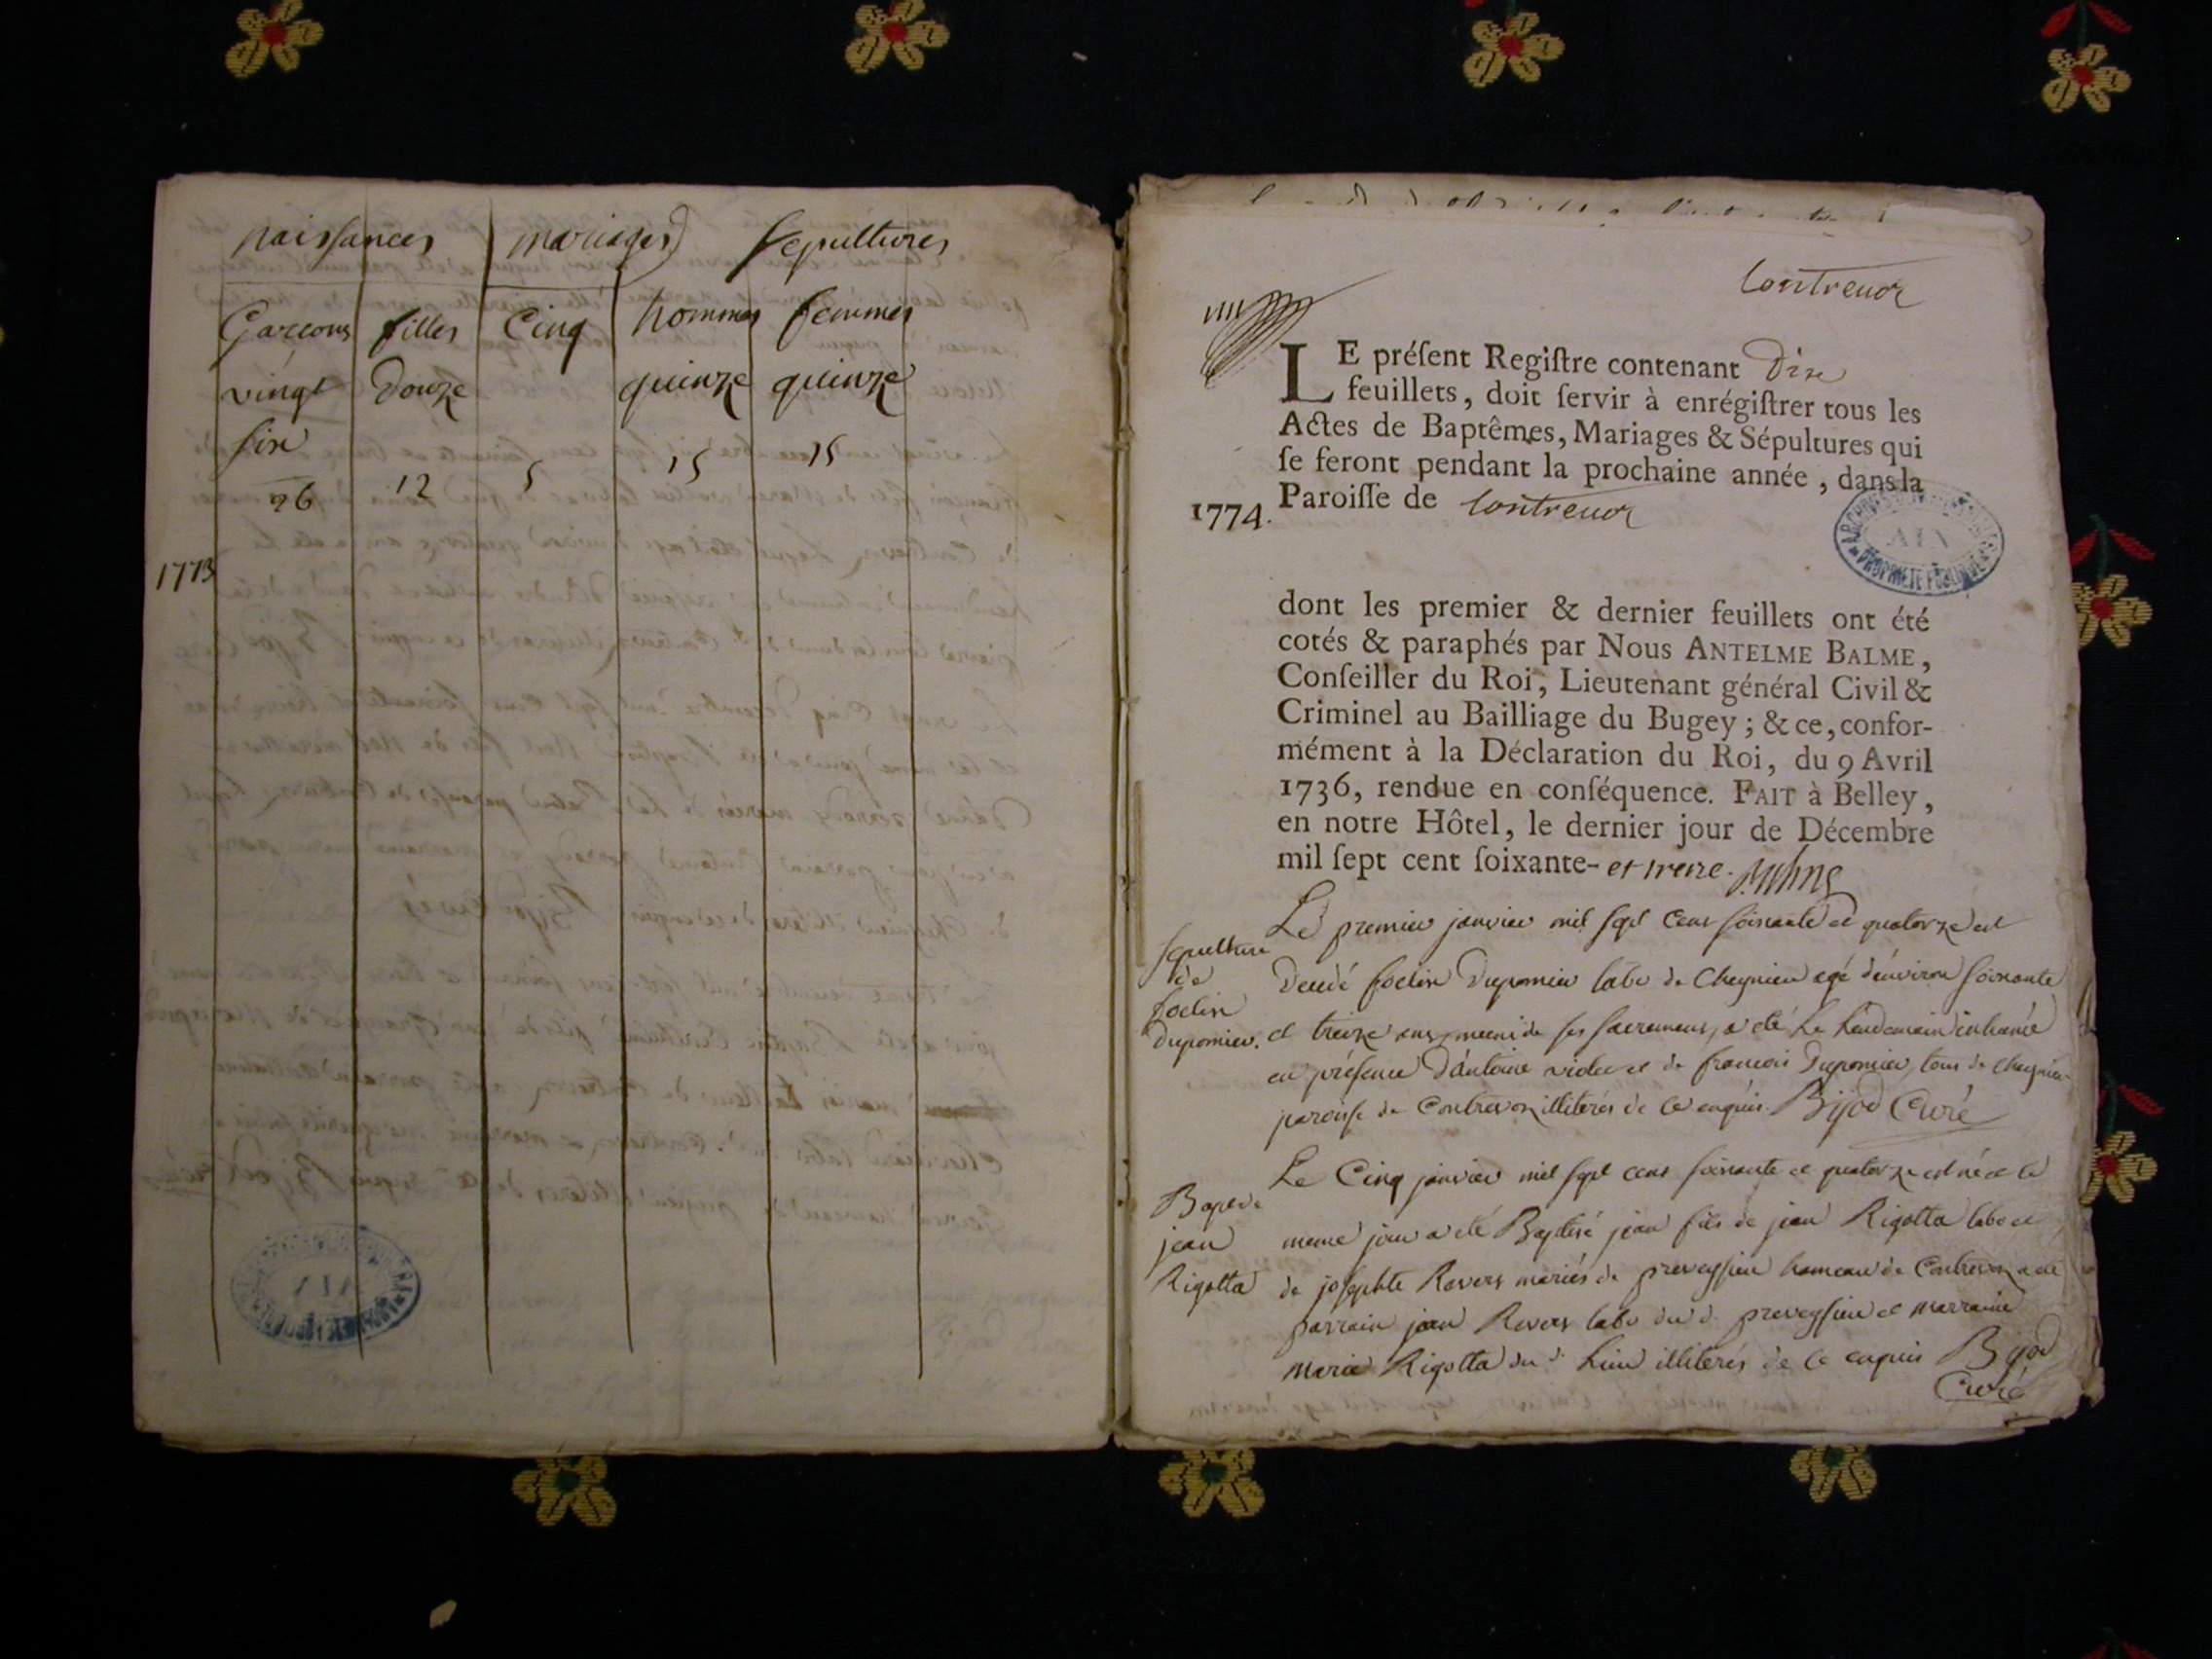 naissances mariages sepultures
Garcons filles Cinq hommes femmes
vingt douze quinze quinze
six
26 12 5 15 15
1773
Contrevoz
LE préſent Regiſtre contenant Dix
feuillets, doit ſervir à enrégiſtrer tous les
Actes de Baptêmes, Mariages & Sépultures qui
ſe feront pendant la prochaine année, dans la
1774. Paroiſſe de Contrevoz
AIN
PROPRIETE PUBLIQUE
dont les premier & dernier feuillets ont été
cotés & paraphés par Nous ANTELME BALME,
Conſeiller du Roi, Lieutenant général Civil &
Criminel au Bailliage du Bugey; & ce, confor-
mément à la Déclaration du Roi, du 9 Avril
1736, rendue en conſéquence. FAIT à Belley,
en notre Hôtel, le dernier jour de Décembre
mil ſept cent ſoixante- et treize.
sepulture
de
foelix
dupomier.
Le premier janvier mil sept cent soixante et quatorze est
decedé foelix Dupomier labr de Cheynieu agé d'environ soixante
et treize ans, muni de ses sacremens, a eté le lendemain inhumé
en présence d'antoine violet et de francois Dupomier, tous de Cheynieu
paroisse de Contrevoz illiterés de ce enquis. Bijod Curé
Bapt de
jean
Rigotta
Le Cinq janvier mil sept cent soixante et quatorze est né et le
meme jour a eté Baptisé jean fils de jean Rigotta labr et
de josephte Ravery mariés de preveyssieu hameau de Contrevoz a eté
parrain jean Ravery labr du d. preveyssieu et marraine
marie Rigotta du d. lieu illiterés de ce enquis Bijod
Curé